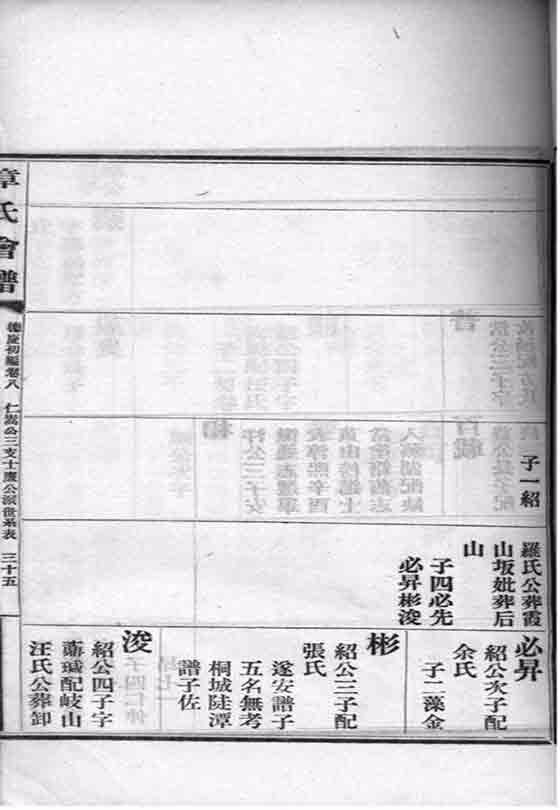 子一紹
羅氏公葬霞
山坂妣葬后
山
子四必先
必昇彬浚
必昇
紹公次子配
余氏
子二藻金
彬
紹公三子配
張氏
遂安譜子
五名無考
桐城陡潭
譜子佐
浚
紹公四子字
瑊配岐山
汪氏公葬卸
章氏會譜
德慶初編卷八
仁嵩公三支士公派世系表
三十五